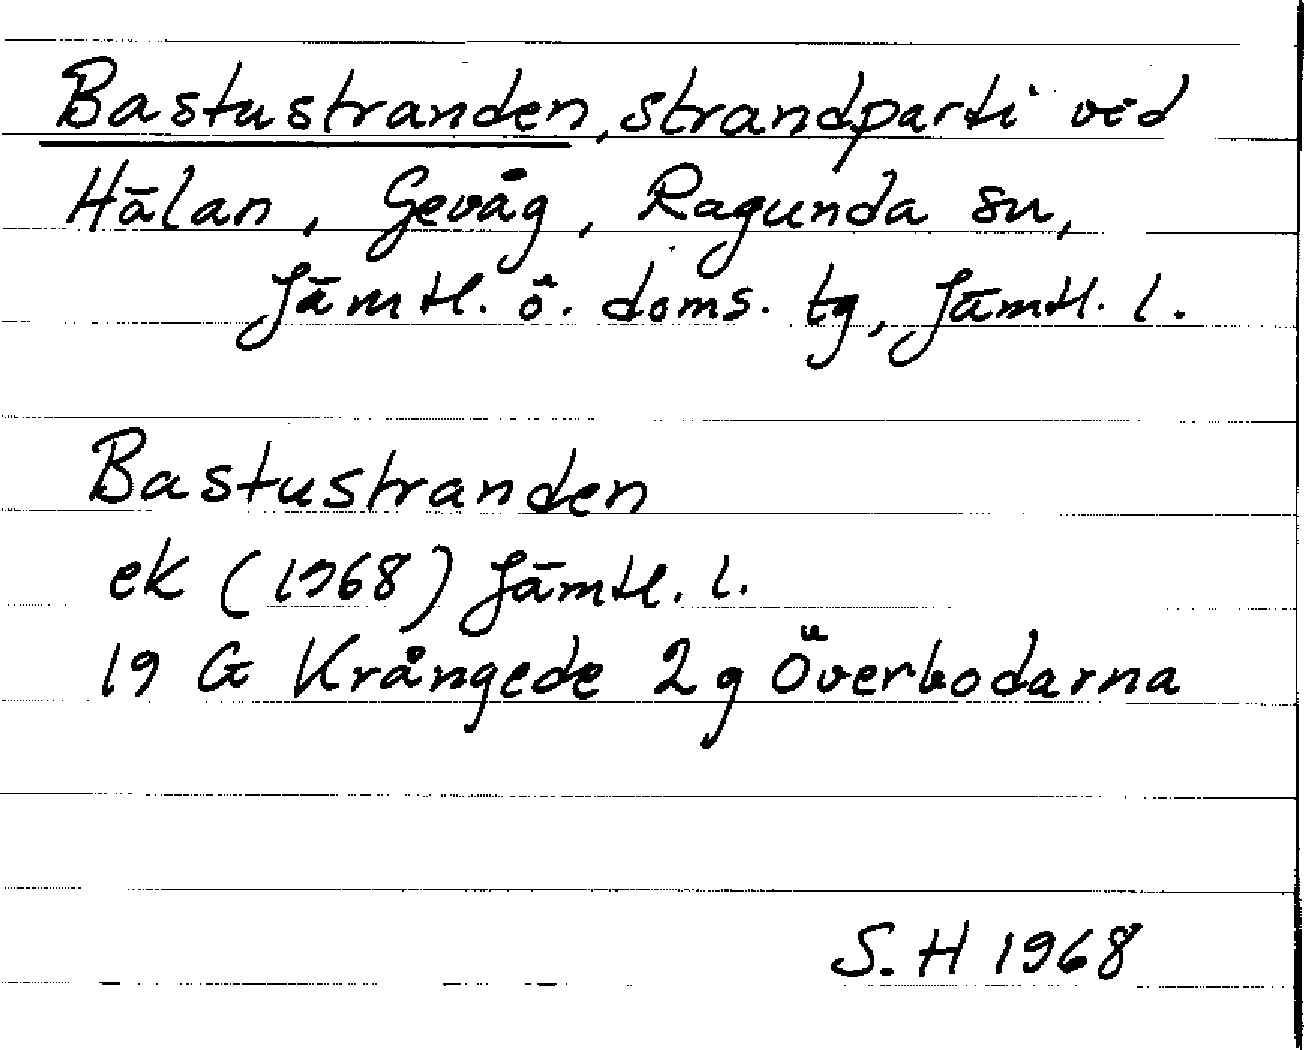 Bastustranden, strandparti vid
Hälan, Gevåg, Ragunda sn,
Jämtl. ö. doms. tg, Jämtl. l.
Bastustranden
ek (1968) Jämtl. l.
19 G Krångede 2 g Överbodarna
S. H 1968